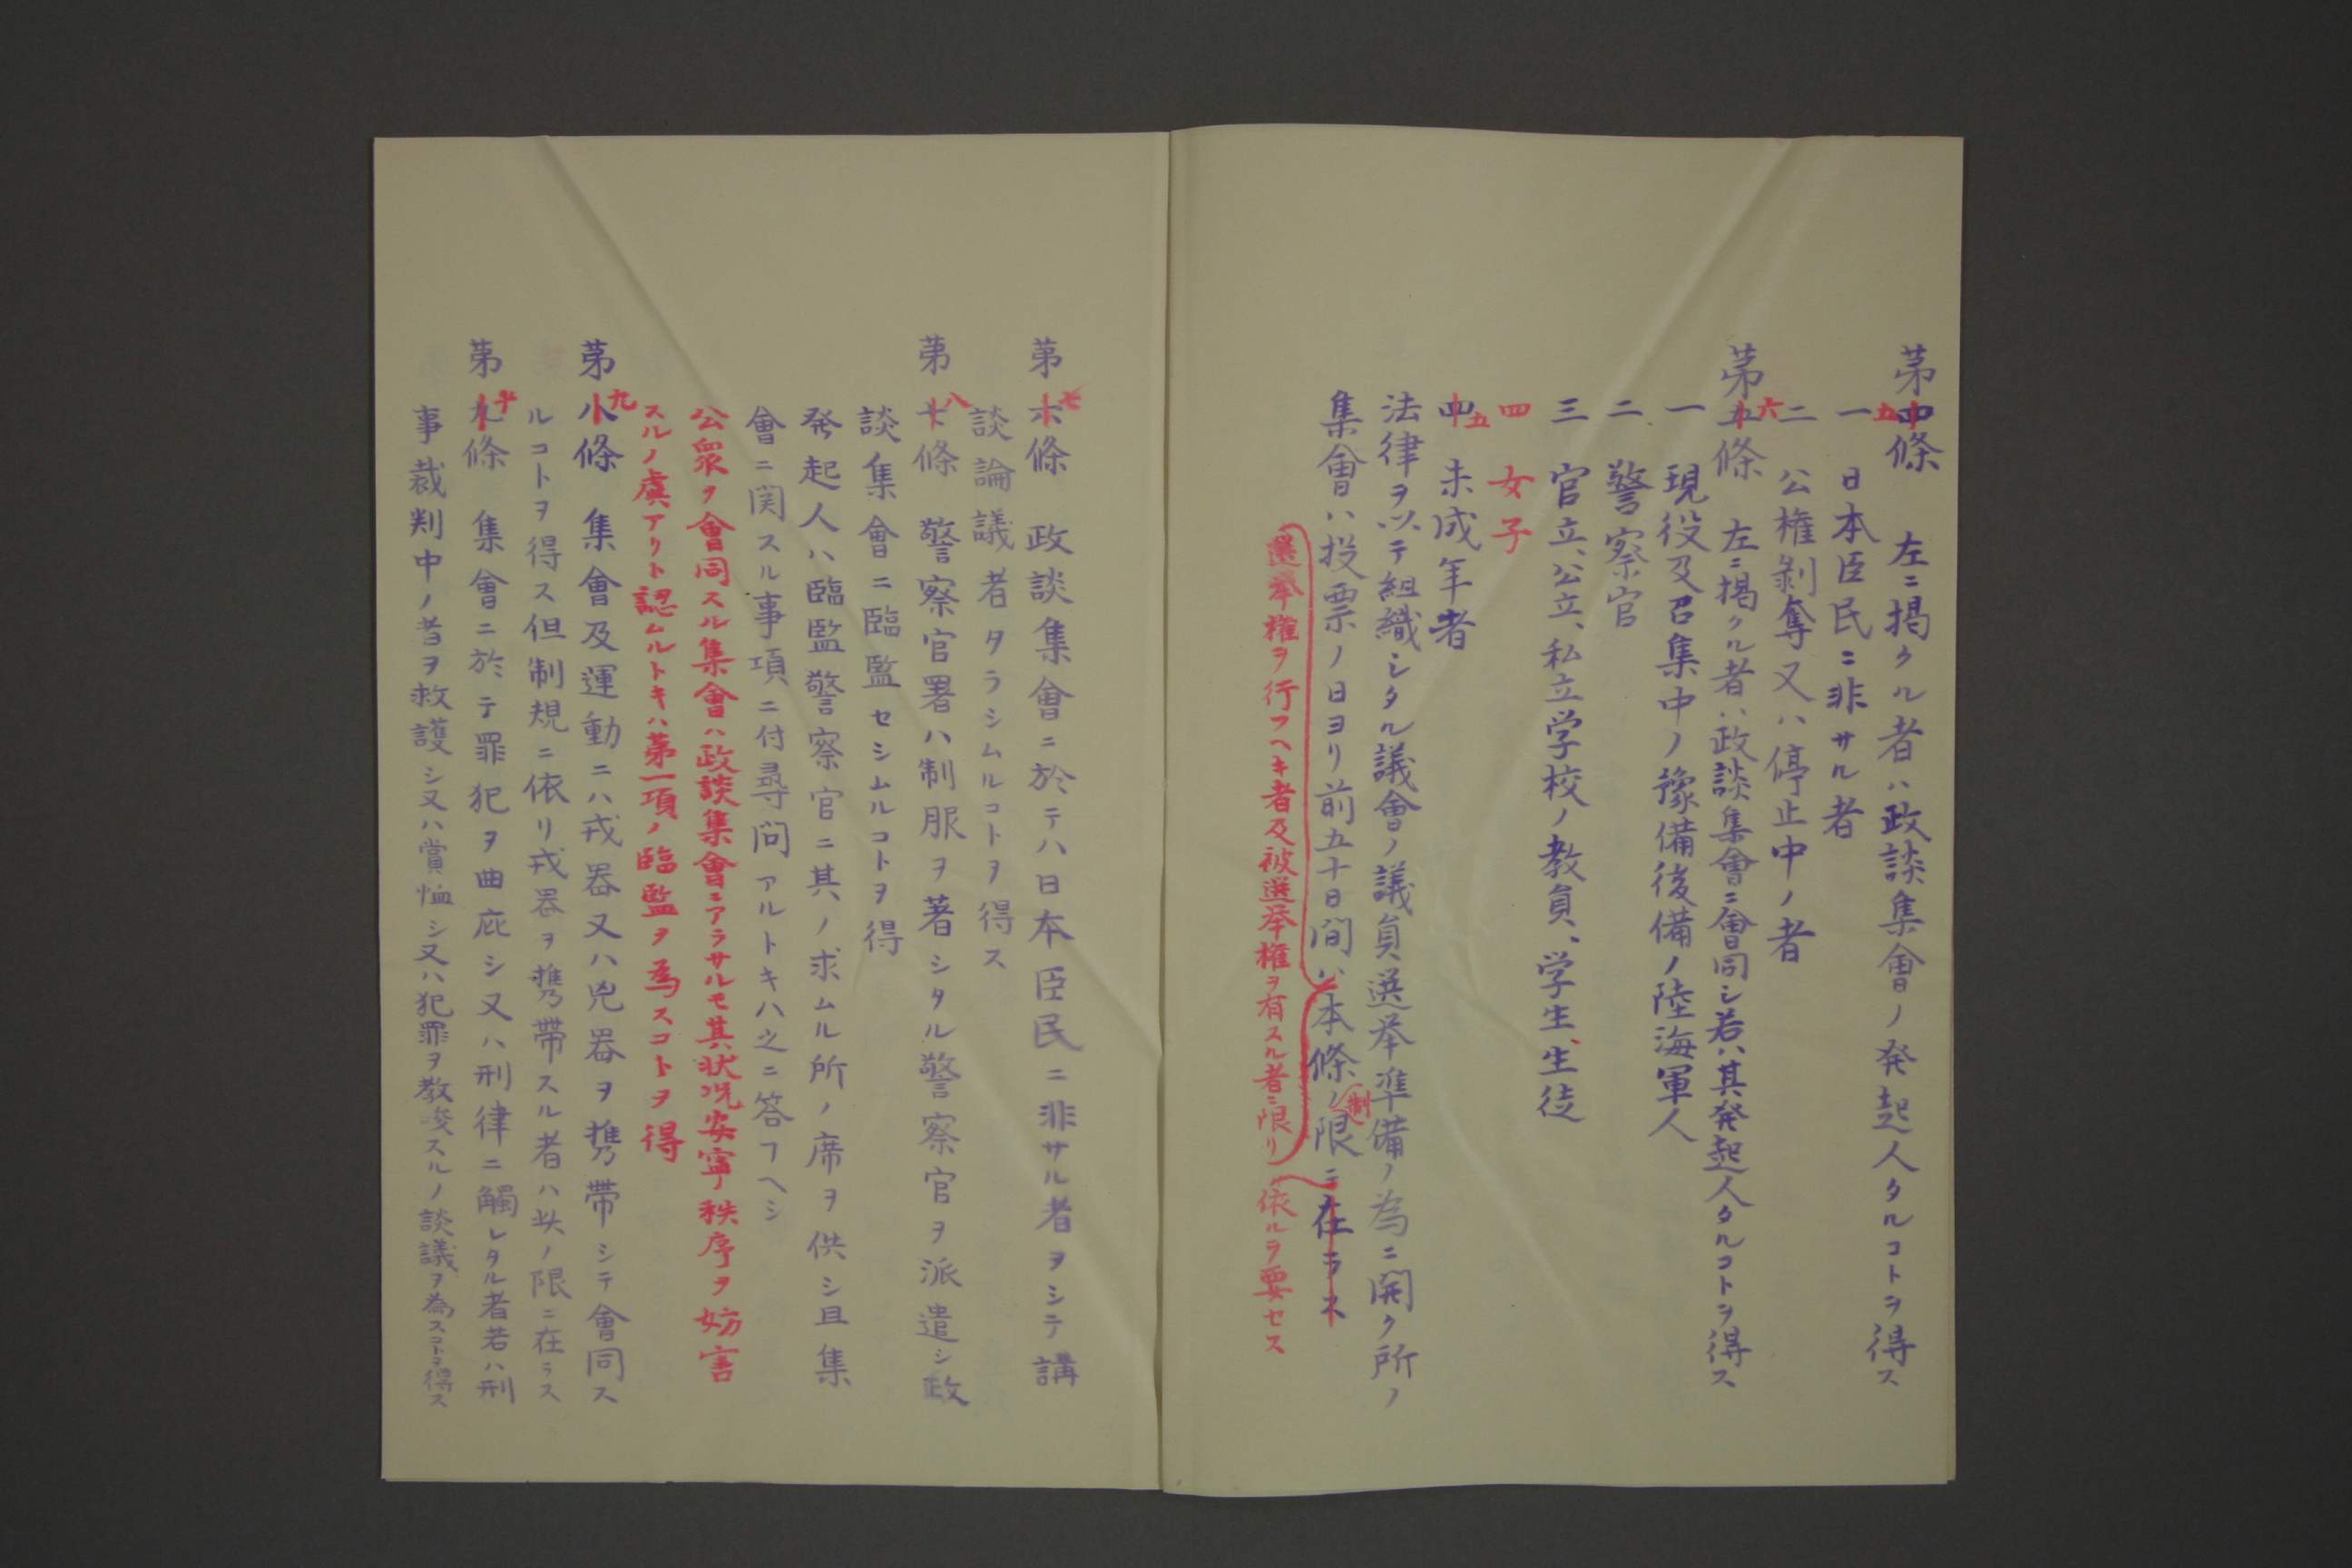 第四五條　左ニ掲クル者ハ政談集會ノ発起人タルコトヲ得ス
一　日本臣民ニ非サル者
二　公権剝奪又ハ停止中ノ者
第五六條　左ニ掲クル者ハ政談集會ニ會同シ若ハ其発起人タルコトヲ得ス
一　現役及召集中ノ豫備後備ノ陸海軍人
二　警察官
三　官立、公立、私立学校ノ教員、学生、生徒
四　女子
四五　未成年者
法律ヲ以テ組織シタル議會ノ議員選挙準備ノ為ニ開ク所ノ
集會ハ投票ノ日ヨリ前五十日間ハ本條ノ制限ニ在ラス
選挙権ヲ行フヘキ者及被選挙権ヲ有スル者ニ限リ依ルヲ要セス
第六七條　政談集會ニ於テハ日本臣民ニ非サル者ヲシテ講
談論議者タラシムルコトヲ得ス
第七八條　警察官署ハ制服ヲ著シタル警察官ヲ派遣シ政
談集會ニ臨監セシムルコトヲ得
発起人ハ臨監警察官ニ其ノ求ムル所ノ席ヲ供シ且集
會ニ関スル事項ニ付尋問アルトキハ之ニ答フヘシ
公衆ヲ會同スル集會ハ政談集會ニアラサルモ其状況安寧秩序ヲ妨害
スルノ虞アリト認ムルトキハ第一項ノ臨監ヲ為スコトヲ得
第八九條　集會及運動ニハ戎器又ハ兇器ヲ携帯シテ會同ス
ルコトヲ得ス但制規ニ依リ戎器ヲ携帯スル者ハ此ノ限ニ在ラス
第九十條　集會ニ於テ罪犯ヲ曲庇シ又ハ刑律ニ觸レタル者若ハ刑
事裁判中ノ者ヲ救護シ又ハ賞恤シ又ハ犯罪ヲ教唆スルノ談議ヲ為スコトヲ得ス